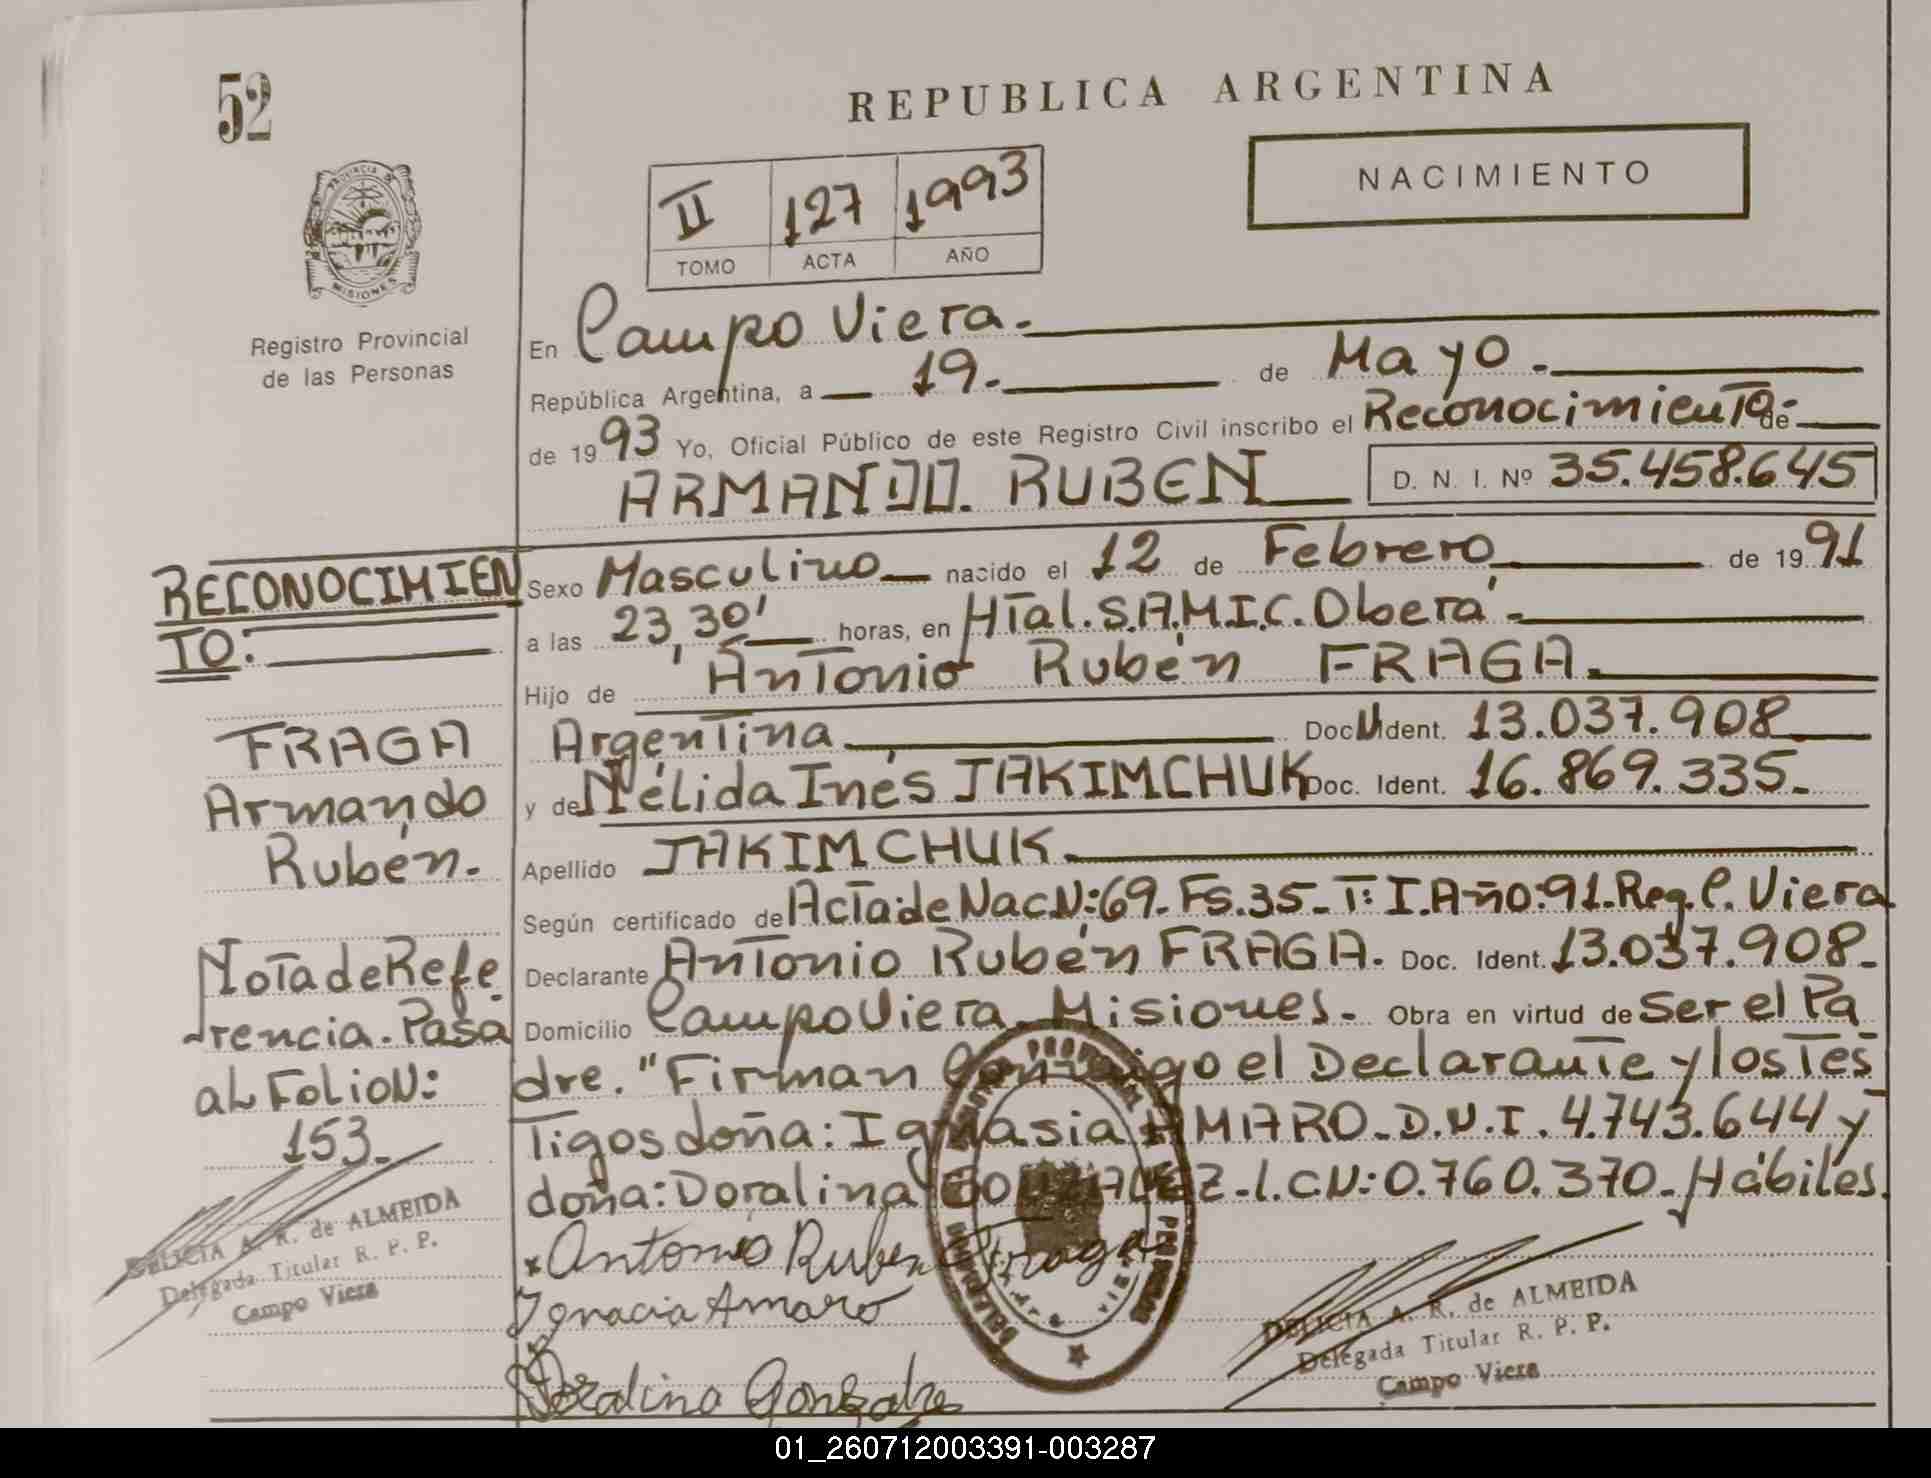 52
REPUBLICA ARGENTINA
NACIMIENTO
II 127 1993
TOMO ACTA AÑO
PROVINCIA DE
MISIONES
Registro Provincial
de las Personas
En Campo Viera.
República Argentina, a 19. de Mayo.
de 1993 Yo, Oficial Público de este Registro Civil inscribo el Reconocimiento de
ARMANDO. RUBEN D. N. I. Nº 35.458.645
RECONOCIMIEN
TO:
FRAGA
Armando
Rubén.
Nota de Refe
rencia. Pasa
al Folio N:
153.
DELICIA A. R. de ALMEIDA
Delegada Titular R. P. P.
Campo Viera
Sexo Masculino nacido el 12 de Febrero de 1991
a las 23,30' horas, en Htal. S.A.M.I.C. Oberá.
Hijo de Antonio Rubén FRAGA.
Argentina Doc. Ident. 13.037.908
y de Nélida Inés JAKIMCHUK Doc. Ident. 16.869.335.
Apellido JAKIMCHUK.
Según certificado de Acta:de Nac.N:69. Fs.35. T: I. Año:91. Reg. C. Viera
Declarante Antonio Rubén FRAGA. Doc. Ident. 13.037.908.
Domicilio Campo Viera. Misiones. Obra en virtud de Ser el Pa
dre. "Firman Conmigo el Declarante y los Tes
Tigos doña: Ignasia AMARO. D.N.I. 4.743.644 y
doña: Doralina GONZALEZ. L.C.N: 0.760.370. Hábiles.
Antonio Ruben Fraga
Ignacia Amaro
Doralina Gonzalez
DELICIA A. R. de ALMEIDA
Delegada Titular R. P. P.
Campo Viera
01_260712003391-003287